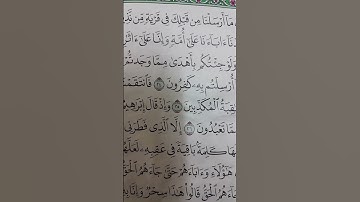 مَآ أَرْسَلْنَا مِن قَبْلِكَ فِى قَرْيَةٍ مِّن نَّذِ
نَآ ءَابَآءَنَا عَلَىٰٓ أُمَّةٍ وَإِنَّا عَلَىٰٓ ءَاثَٰرِ
وَلَوْ جِئْتُكُم بِأَهْدَىٰ مِمَّا وَجَدتُّمْ
أُرْسِلْتُم بِهِۦ كَٰفِرُونَ ٢٤ فَٱنتَقَمْنَا
قِبَةُ ٱلْمُكَذِّبِينَ ٢٥ وَإِذْ قَالَ إِبْرَٰهِيـ
مَّا تَعْبُدُونَ ٢٦ إِلَّا ٱلَّذِى فَطَرَنِى
هَا كَلِمَةًۢ بَاقِيَةً فِى عَقِبِهِۦ لَعَلَّهُمْ
هَٰٓؤُلَآءِ وَءَابَآءَهُمْ حَتَّىٰ جَآءَهُمُ ٱلْحَقُّ
جَآءَهُمُ ٱلْحَقُّ قَالُوا۟ هَٰذَا سِحْرٌ وَإِنَّا بِـ